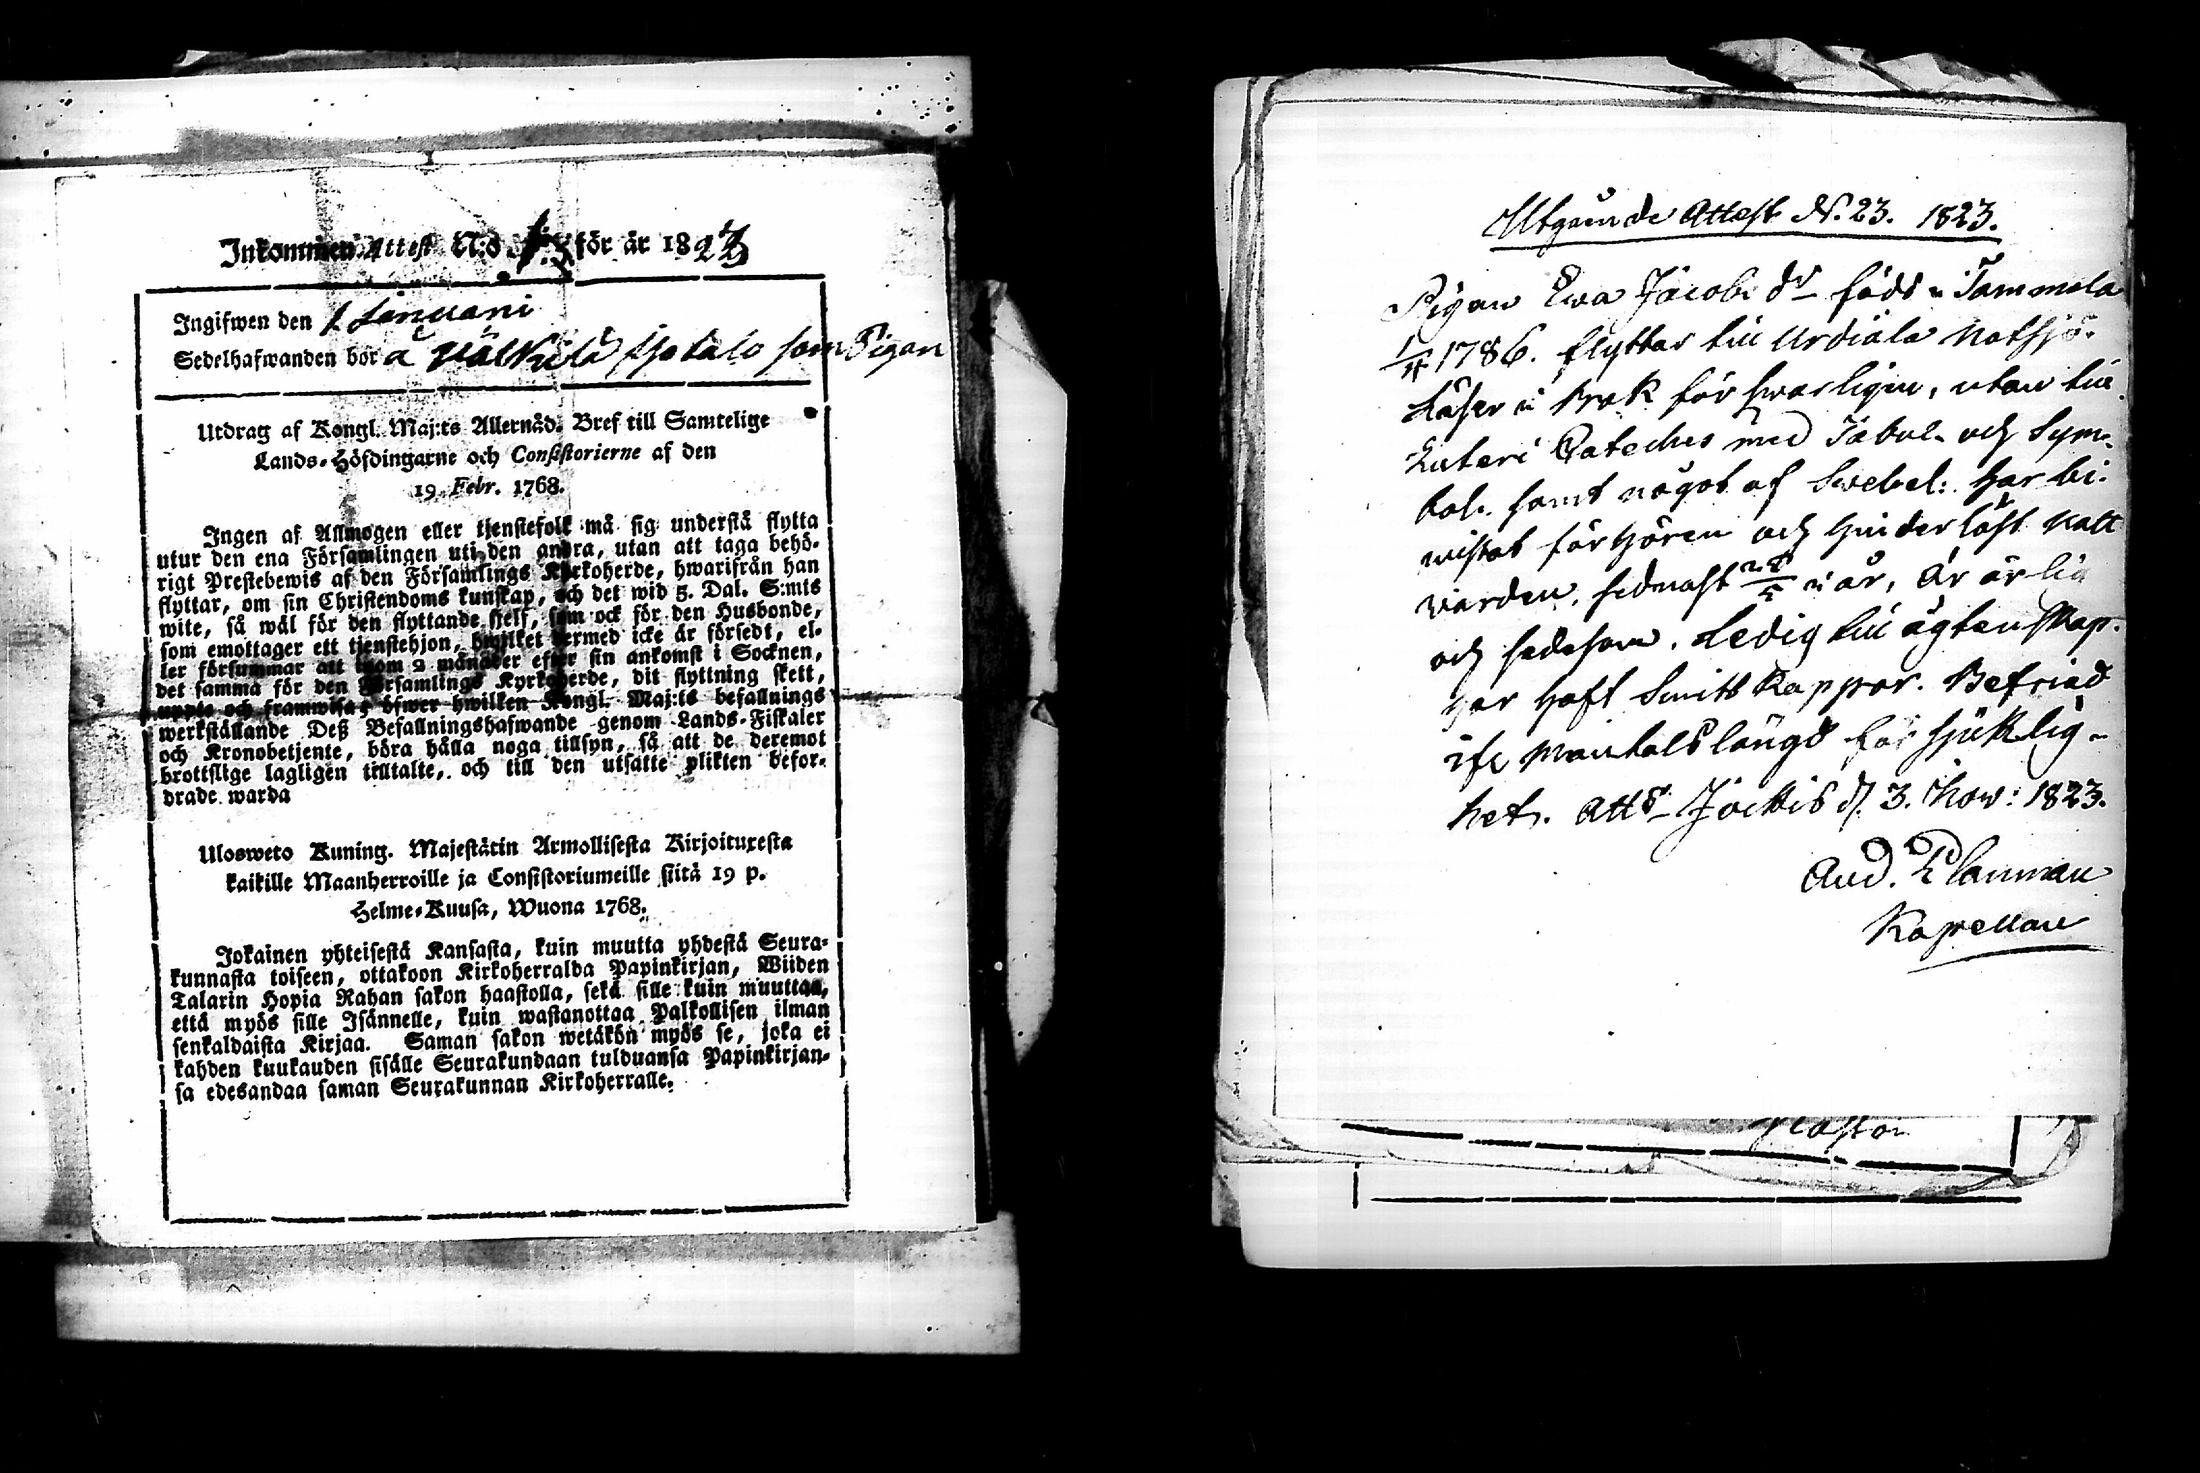 Inkommen Attest N:o för år 1823
Ingifwen den 1 Januari
Sedelhafwanden bor å Wälkkilä som Pigan
Utdrag af Kongl. Maj:ts Allernåd. Bref till Samtelige
Lands-Höfdingarne och Consistorierne af den
19 Febr. 1768.
Ingen af Allmogen eller tjenstefolk må sig understå flytta
utur den ena Församlingen uti den andra, utan att taga behö-
rigt Prestebewis af den Församlings Kyrkoherde, hwarifrån han
flyttar, om sin Christendoms kunskap, och det wid 5. Dal. S:mts
wite, så wäl för den flyttande sjelf, som ock för den Husbonde,
som emottager ett tjenstehjon, hwilket dermed icke är försedt, el-
ler försummar att inom 2 månader efter sin ankomst i Socknen,
det samma för den Församlings Kyrkoherde, dit flyttning skett,
uppte och framwisa; öfwer hwilken Kongl. Maj:ts befallnings
werkställande Deß Befallningshafwande genom Lands-Fiskaler
och Kronobetjente, böra hålla noga tillsyn, så att de deremot
brottslige lagligen tilltalte, och till den utsatte plikten befor-
drade warda
Ulosweto Kuning. Majestätin Armollisesta Kirjoituxesta
kaikille Maanherroille ja Consistoriumeille siitä 19 p.
Helme-Kuusa, Wuona 1768.
Jokainen yhteisestä Kansasta, kuin muutta yhdestä Seura-
kunnasta toiseen, ottakoon Kirkoherralda Papinkirjan, Wiiden
Talarin Hopia Rahan sakon haastolla, sekä sille kuin muuttaa,
että myös sille Isännelle, kuin wastanottaa Palkollisen ilman
senkaldaista Kirjaa. Saman sakon wetäkön myös se, joka ei
kahden kuukauden sisälle Seurakundaan tulduansa Papinkirjan-
sa edesandaa saman Seurakunnan Kirkoherralle.
Utgående Attest N. 23. 1823.
Pigan Ewa Jacobs dr född i Tammela
1786. flyttar till Urdiala Notsjö.
Läser i Bok försvarligen, utan till
Luteri Cateches med Tabul. och Sym-
bol. samt något af Swebel: har bi-
wistat förhören och hinderlöst Natt
varden, sednast i år, Är ärlig
och sedesam. Ledig till ägtenskap.
har haft Smitt Kappor. Befriad
ifr Mantalslängd för sjuklig-
het. Att:s Jockis d. 3. Now: 1823.
And. Planman
Kapellan